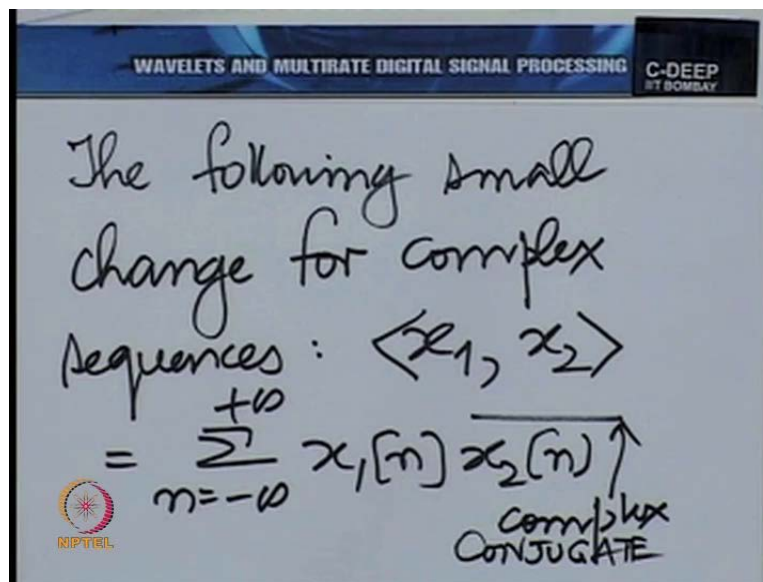 WAVELETS AND MULTIRATE DIGITAL SIGNAL PROCESSING
C-DEEP
IIT BOMBAY
The following small
change for complex
sequences : ⟨x₁, x₂⟩
+∞
= Σ x₁[n] x₂[n]
n=-∞
complex
CONJUGATE
NPTEL